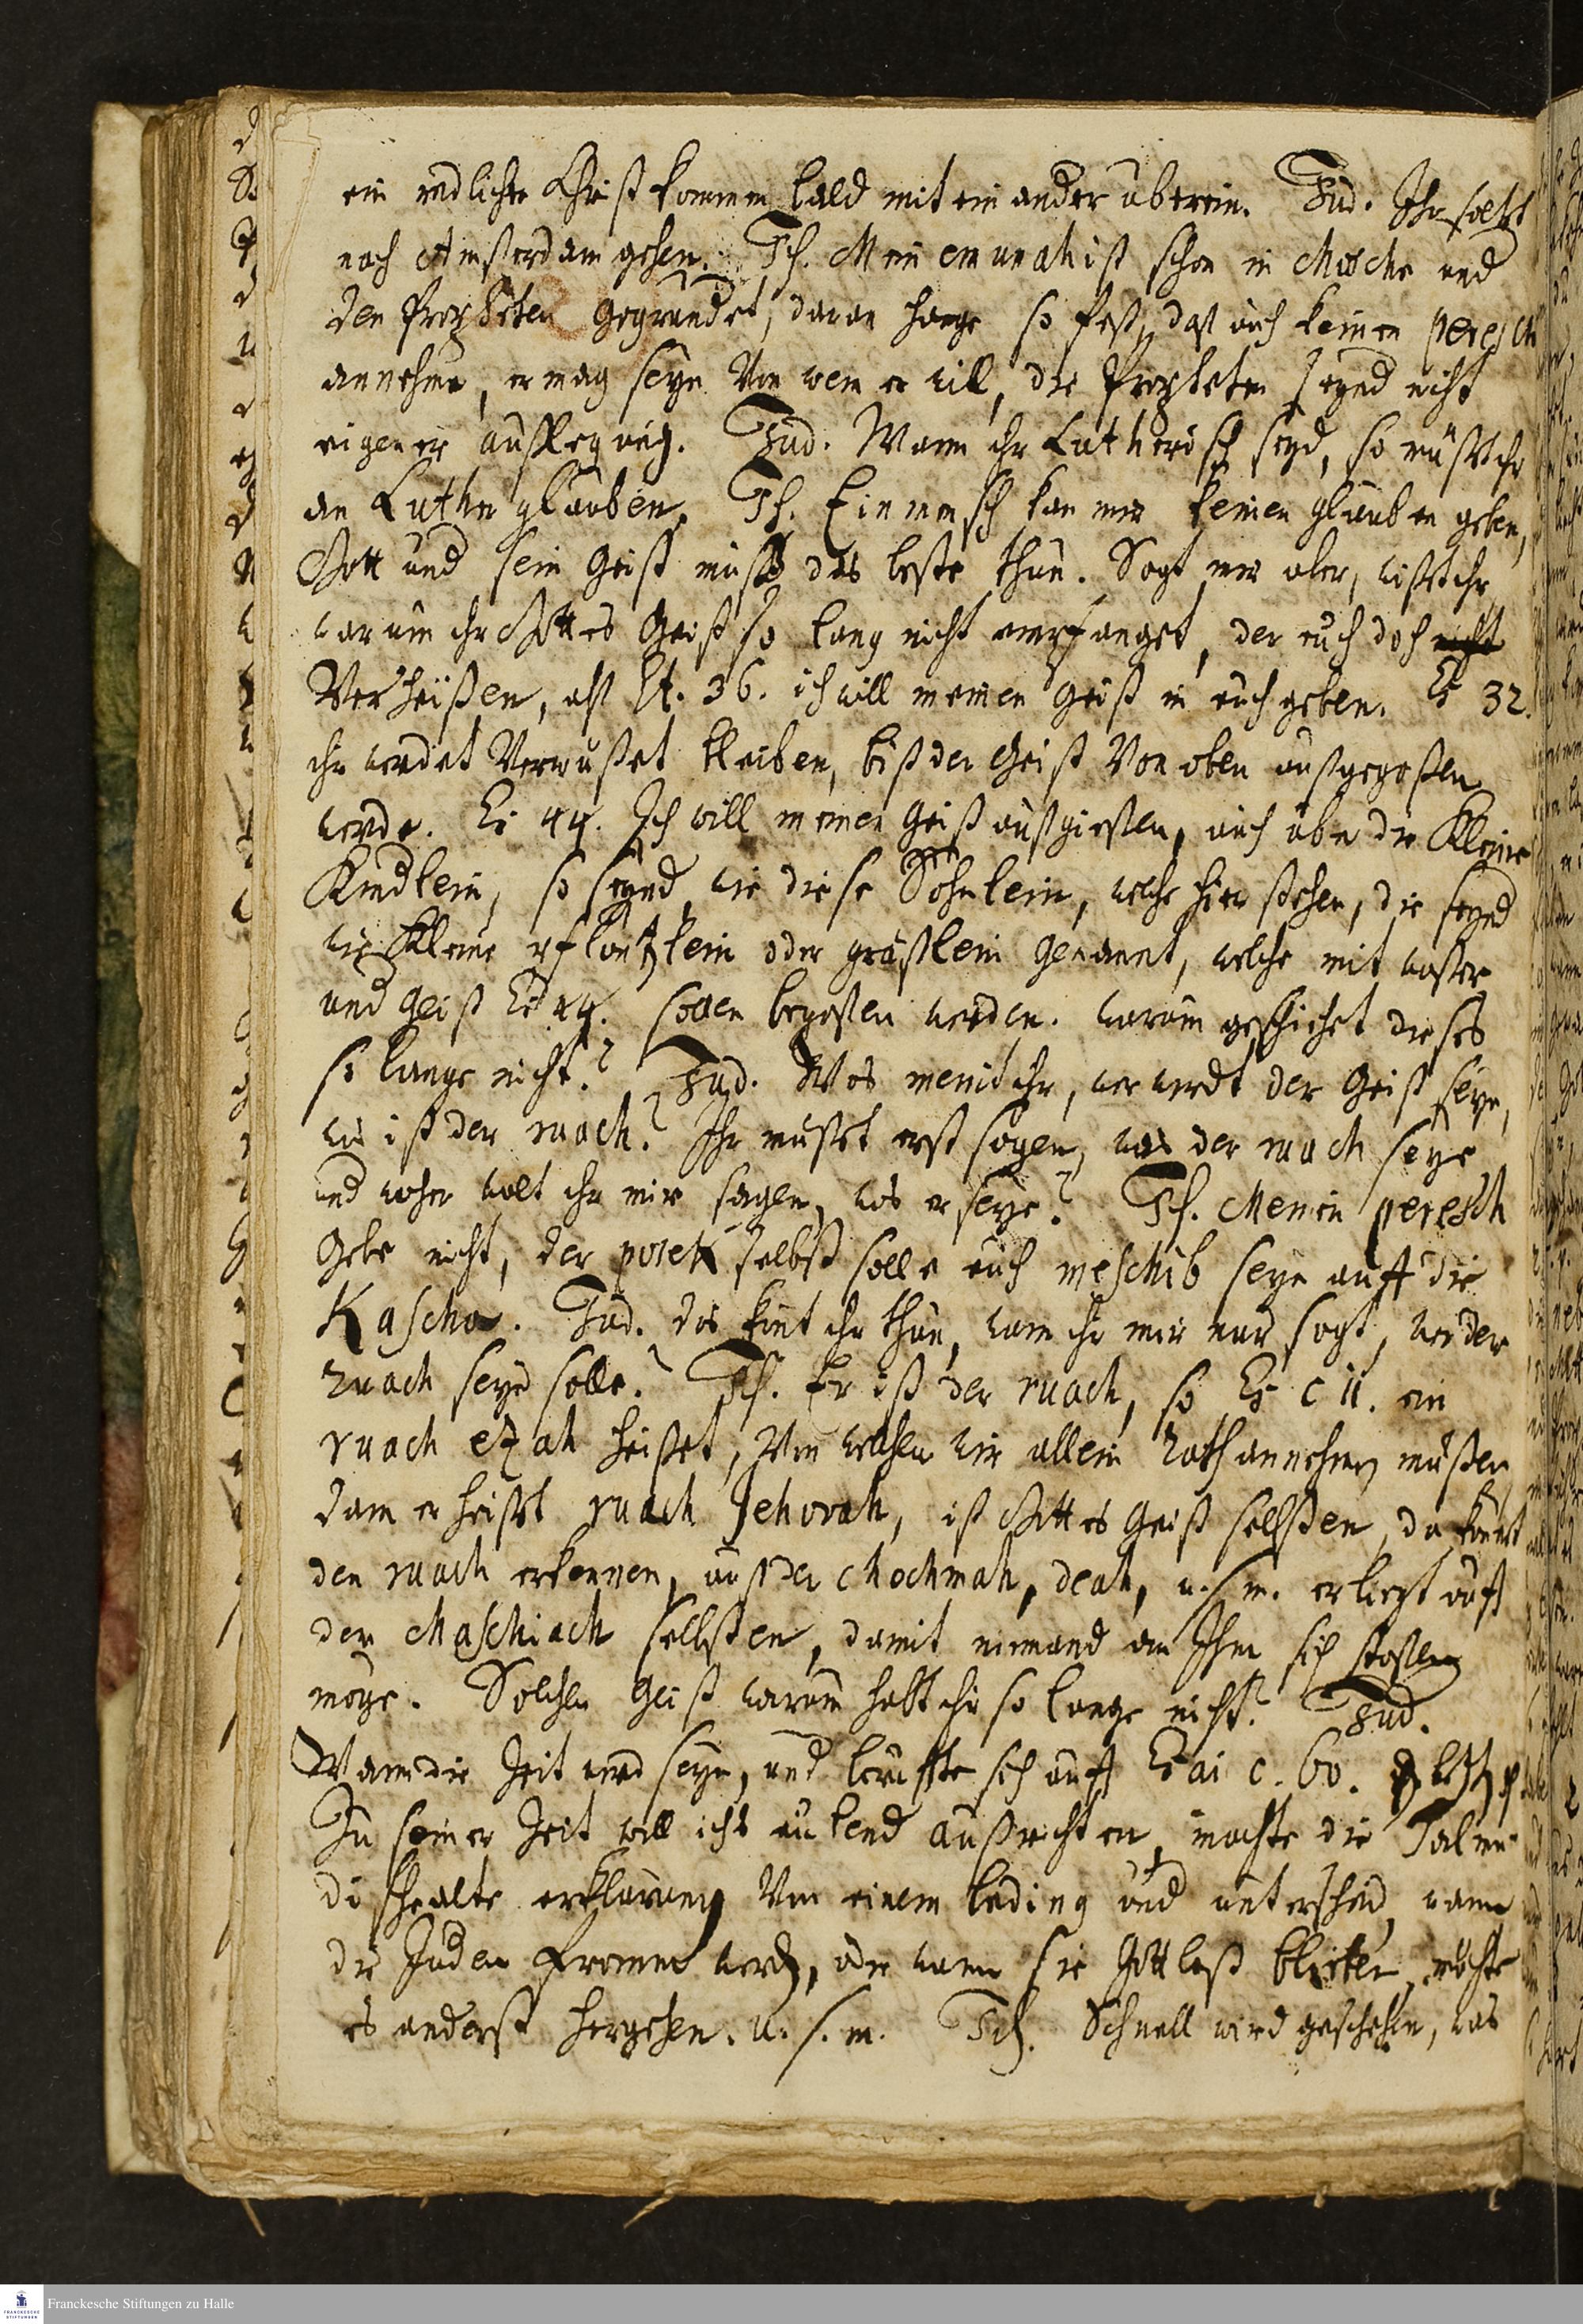 ein redlicher Christ kommen bald mit ein ander überein. Jud. Ihr soltet
nach Amsterdam gehen. Ich. Mein emunah ist schon in Mosche und
den Propheten gegründet, daran hange so fest, daß auch keinen peresch
annehme, er mag seyn Von wem er will, die Propheten seynd nicht
eigener außlegung. Jud. Wann ihr Lutherisch seyd, so müst ihr
an Luther glauben. Ich. Ein mensch kan mir keinen glauben geben,
Gott und sein Geist muß das beste thun. Sagt mir aber, wißt ihr
warum ihr Gottes Geist so lang nicht empfanget, der euch doch
Verheißen, als Ez. 36. ich will meinen Geist in euch geben. Es 32.
ihr werdet Verwüstet bleiben, biß der Geist Von oben außgegoßen
werde. Es 44. Ich will meinen Geist außgießen, auch über die Kleine
Kindlein, so seynd wie diese Söhnlein, welche hier stehen, die seynd
wie Kleine pfläntzlein oder gräßlein genannt, welche mit waßer
und Geist Es 44. sollen begoßen werden. warum geschiehet dieses
so lange nicht? Jud. Was meint ihr, wer werdt der Geist seyn,
wer ist der ruach? Ihr müsset erst sagen, was der ruach seye
und woher wolt ihr mir sagen, was er seye? Ich. Meinen peresch
Gebe nicht, der posek selbst solle euch meschib seyn auff die
Kascha. Jud. das könt ihr thun, wann ihr mir nur sagt, wer der
ruach seyn solle? Ich. Er ist der ruach, so Es c 11. ein
ruach ezah heißet, Von welchen wir allein Rath annehmen müßen
dann er heißt ruach Jehovah, ist Gottes Geist selbsten, da könnt
den ruach erkennen, auß der chochmah, deah, u. s. m. er liegt auff
den Maschiach selbsten, damit niemand an Ihm sich stoßen
möge. Solchen Geist warum habt ihr so lange nicht? Jud.
Wann die Zeit wird seyn, und beruffte sich auff Esai c. 60.
Zu seiner Zeit will ichs eylend außrichten, machte die Talmu-
dische alte erklärung Von einem beding und unterscheid, wann
die Juden fromm werden, oder wann sie Gottloß blieben, müste
es anderst hergehen. u. s. m. Ich. Schnell wird geschehen, was
Franckesche Stiftungen zu Halle